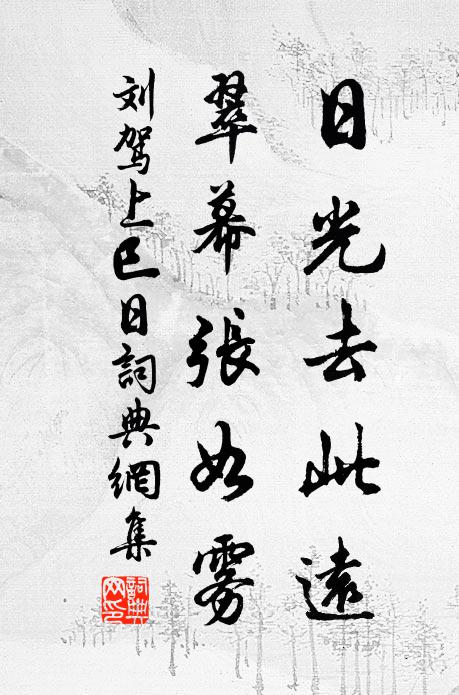 日光去此遠
翠幕張如霧
刘駕上巳日詞典網集
詞典網印